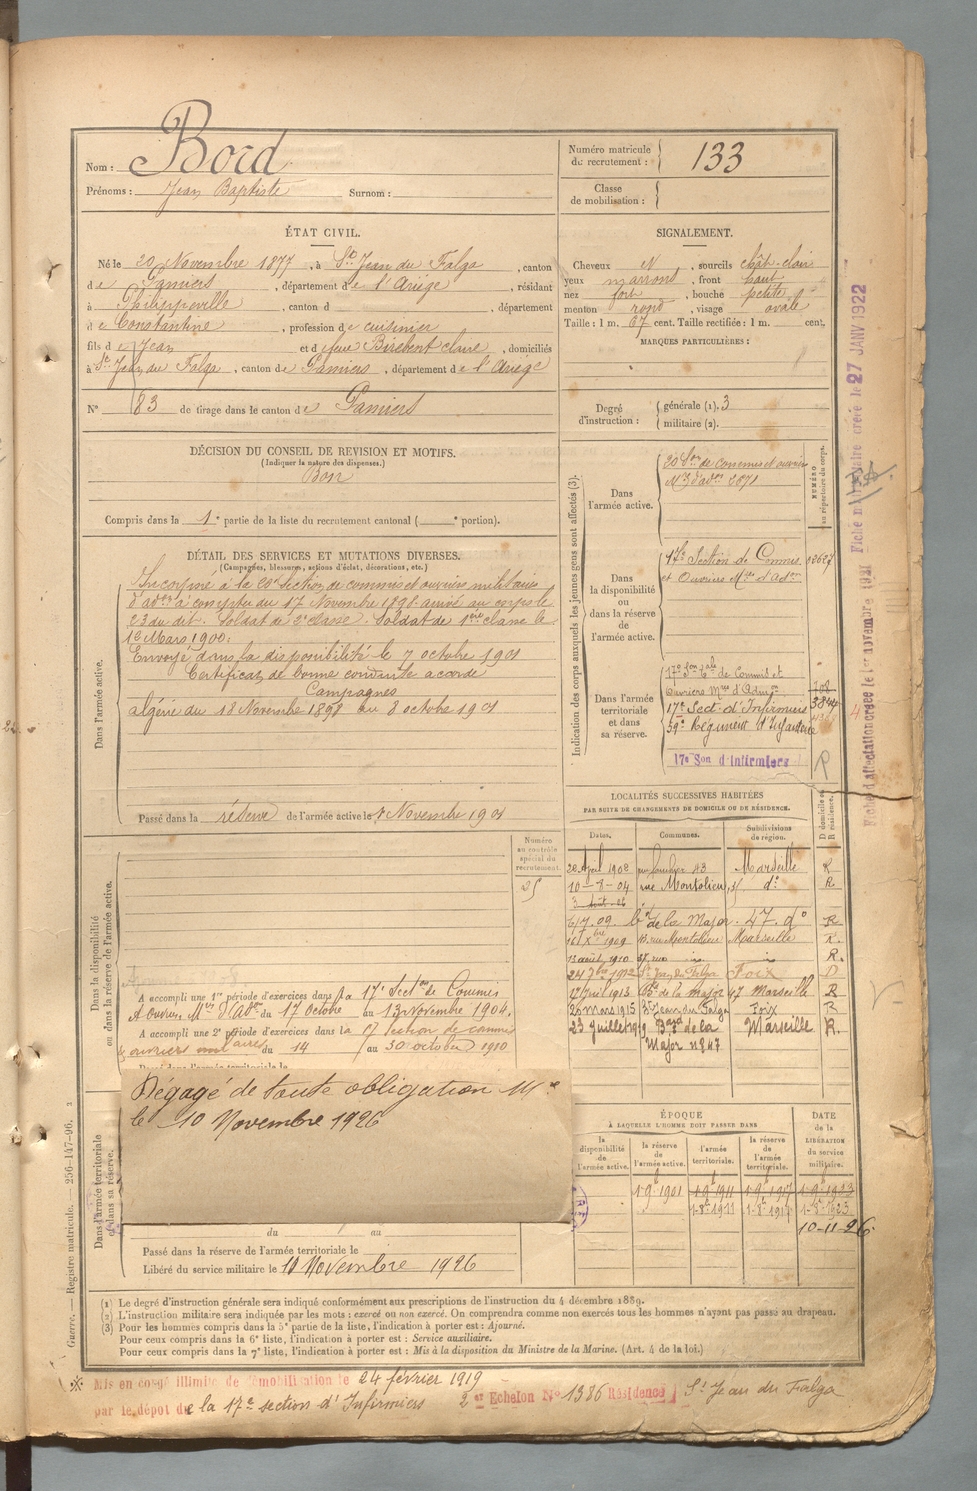 Nom : Bord
Prénoms : Jean Baptiste Surnom :
Numéro matricule
du recrutement : 133
Classe
de mobilisation :
ÉTAT CIVIL.
Né le 20 Novembre 1877, à St Jean du Falga, canton
de Pamiers, département de l'Ariège, résidant
à Philippeville, canton d , département
de Constantine, profession de cuisinier
fils de Jean et de feue Birebent claire, domiciliés
à St Jean du Falga, canton de Pamiers, département de l'Ariège
N° 83 de tirage dans le canton de Pamiers
SIGNALEMENT.
Cheveux N, sourcils chât-clair
yeux marrons, front haut
nez fort, bouche petite
menton rond, visage ovale
Taille : 1 m. 67 cent. Taille rectifiée : 1 m. cent.
MARQUES PARTICULIÈRES :
Degré
d'instruction :
générale (1). 3
militaire (2).
DÉCISION DU CONSEIL DE REVISION ET MOTIFS.
(Indiquer la nature des dispenses.)
Bon
Compris dans la 1e partie de la liste du recrutement cantonal ( e portion).
DÉTAIL DES SERVICES ET MUTATIONS DIVERSES.
(Campagnes, blessures, actions d'éclat, décorations, etc.)
Dans l'armée active.
Incorporé à la 20e Section de commis et ouvriers militaires
d'adon à compter du 17 Novembre 1898 arrivé au corps le
23 du dit. Soldat de 2e classe. Soldat de 1ère classe le
16 Mars 1900.
Envoyé dans la disponibilité le 7 octobre 1901
Certificat de bonne conduite accordé
Campagnes
Algérie du 18 Novembre 1898 au 8 octobre 1901
Passé dans la réserve de l'armée active le 1 Novembre 1901
Indication des corps auxquels les jeunes gens sont affectés (3).
NUMÉRO
au répertoire du corps.
Dans
l'armée active.
20 Son de commis et ouvriers
Mres d'adon 2871
Dans
la disponibilité
ou
dans la réserve
de
l'armée active.
17e Section de Commis
et Ouvriers Mres d'adon
Dans l'armée
territoriale
et dans
sa réserve.
17e Son tale de Commis et
Ouvriers Mres d'Admon
17e Sect. d'Infirmiers 3844
59e Régiment d'Infanterie
17e Son d'Infirmiers
R
Fiche d'affectation créée le 1er novembre 1921 Fiche créée le 27 JANV 1922
LOCALITÉS SUCCESSIVES HABITÉES
PAR SUITE DE CHANGEMENTS DE DOMICILE OU DE RÉSIDENCE.
Dates. Communes. Subdivisions de région. D domicile ou R résidence.
Avril 1902 Marseille R
10-8-04 rue Montolieu, do R
Bd de la Major 47 do R
1909 rue Montolieu Marseille R.
13 août 1910 R.
1912 St Jean du Falga Foix D
Avril 1913 Bd de la Major 47 Marseille R
26 mars 1915 St Jean du Falga Foix R
23 juillet 1919 Bard de la Marseille R.
Major n° 47
Numéro
au contrôle
spécial du
recrutement.
25
Dans la disponibilité
ou dans la réserve de l'armée active.
A accompli une 1re période d'exercices dans la 17e Secton de Commis
et Ouvriers Mres d'Adon du 17 octobre au 13 novembre 1904.
A accompli une 2e période d'exercices dans la 17 Section de commis
& ouvriers militaires du 14 au 30 octobre 1910
Dégagé de toute obligation Mre
le 10 Novembre 1926
Dans l'armée territoriale
et dans sa réserve.
du au
Passé dans la réserve de l'armée territoriale le
Libéré du service militaire le 10 Novembre 1926
ÉPOQUE
À LAQUELLE L'HOMME DOIT PASSER DANS
la disponibilité de l'armée active. la réserve de l'armée active. l'armée territoriale. la réserve de l'armée territoriale.
DATE
de la
LIBÉRATION
du service
militaire.
1-9b 1901 1-9b 1911 1-9b 1917 1-9b 1923
1-8b 1911 1-8b 1917 1-8b 1923
10-11-26.
(1) Le degré d'instruction générale sera indiqué conformément aux prescriptions de l'instruction du 4 décembre 1889.
(2) L'instruction militaire sera indiquée par les mots : exercé ou non exercé. On comprendra comme non exercés tous les hommes n'ayant pas passé au drapeau.
(3) Pour les hommes compris dans la 5e partie de la liste, l'indication à porter est : Ajourné.
Pour ceux compris dans la 6e liste, l'indication à porter est : Service auxiliaire.
Pour ceux compris dans la 7e liste, l'indication à porter est : Mis à la disposition du Ministre de la Marine. (Art. 4 de la loi.)
Guerre. — Registre matricule. — 256-147-96. 2
Mis en congé illimité de démobilisation le 24 février 1919
par le dépôt de la 17e section d'Infirmiers 2e Echelon N° 1386 Résidence St Jean du Falga